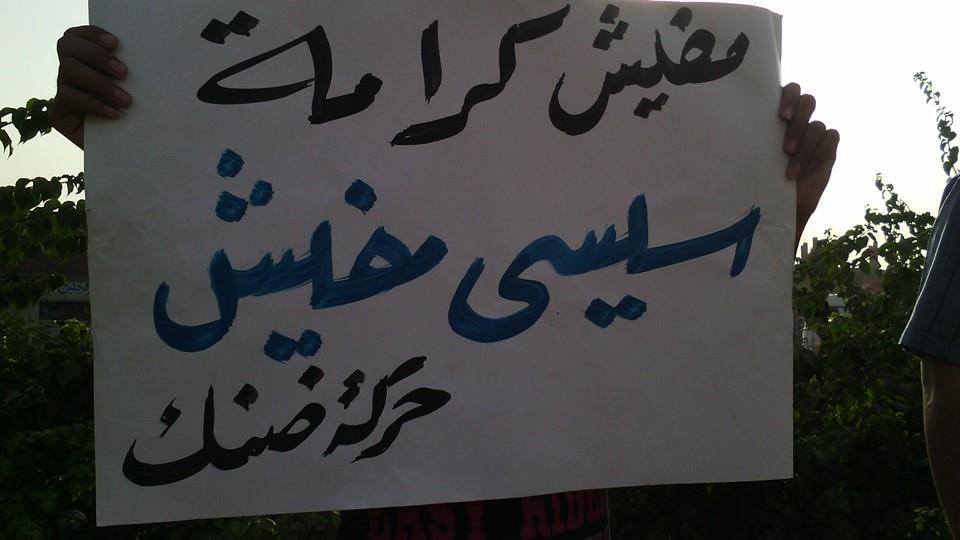 مفيش كرامة
سيسى مفيش
حركة ضنك
EASY RIDE